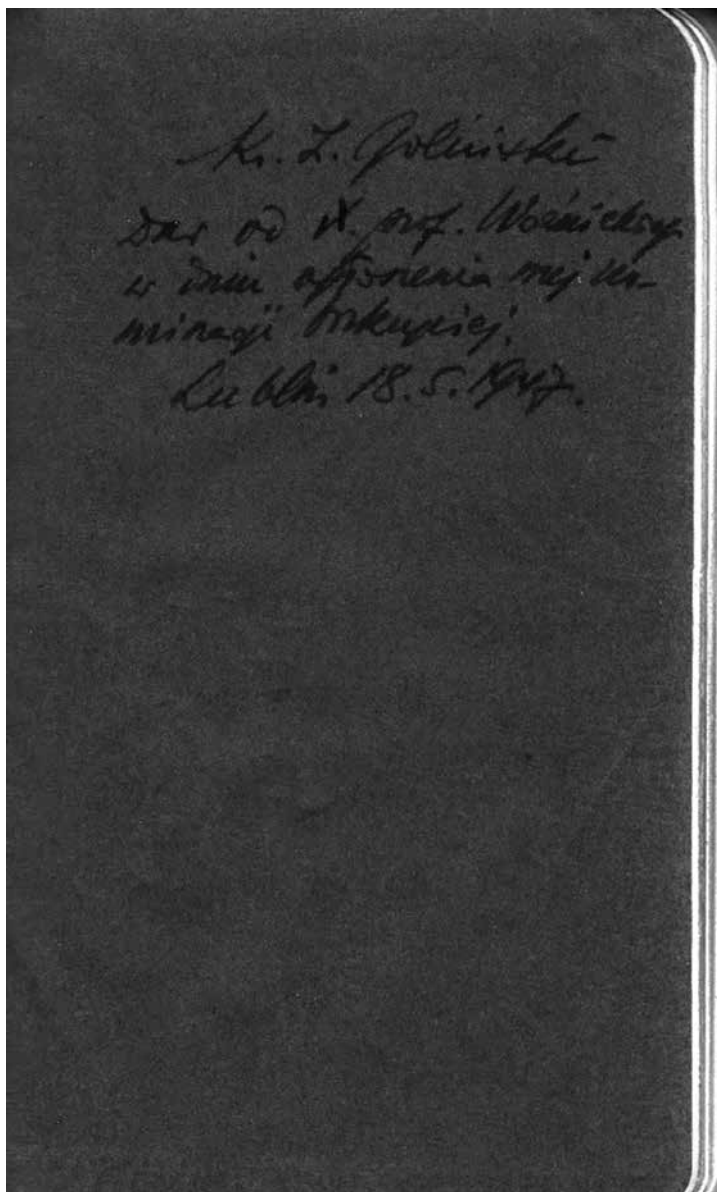 Ks. Z. Goliński
Dar od X. prof. Woźnickiego
w dniu ogłoszenia mej no-
minacji biskupiej.
Lublin 18.5.1947.